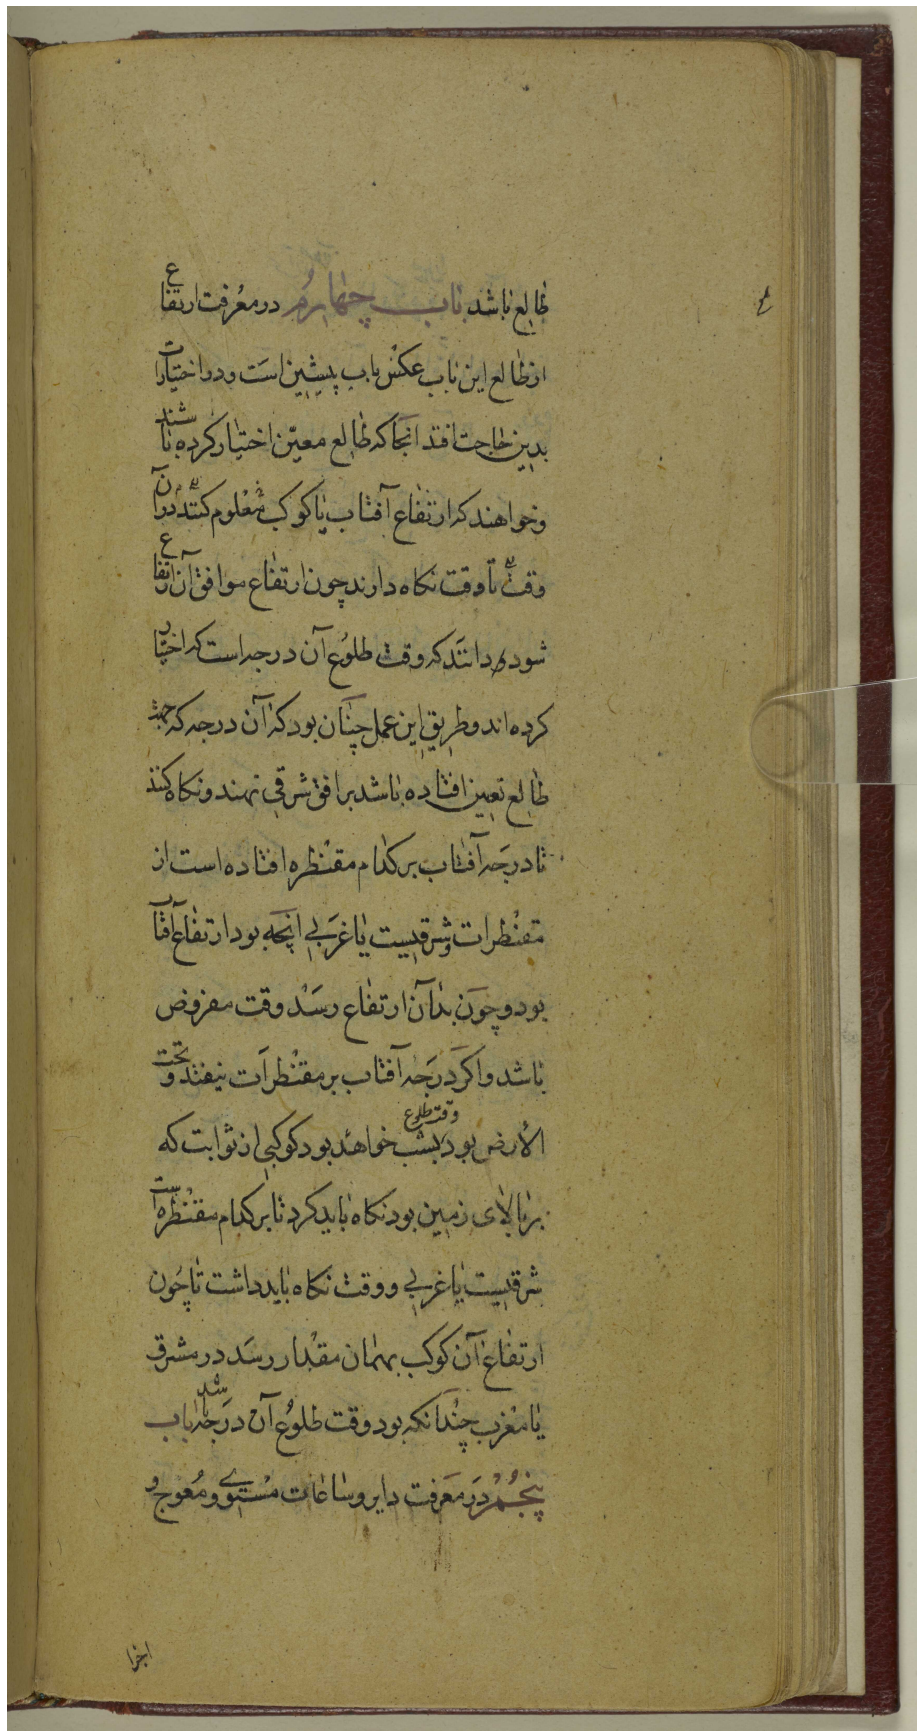 ۴
طالع باشد باب چهارم در معرفت ارتفاع
از طالع این باب عکس باب پیشین است و در اختیارات
بدین حاجت افتد انجا که طالع معیّن اختیار کرده باشند
و خواهند که ارتفاع آفتاب یا کوکب معلوم کنند در آن
وقت تا وقت نکاه دارند چون ارتفاع موافق آن ارتفاع
شود دانند که وقت طلوع آن درجه است که اختیار
کرده اند و طریق این عمل چنان بود که آن درجه که جهت
طالع تعین افتاده باشد بر افق شرقی نهند و نکاه کنند
تا درجه آفتاب بر کدام مقنطره افتاده است از
مقنطرات و شرقیست یا غربی انچه بود ارتفاع آفتاب
بود و چون بدان ارتفاع رسد وقت مفروض
باشد و اکر درجه آفتاب بر مقنطرات نیفتد و تحت
الأرض بود بشب خواهد بود کوکبی از ثوابت که
وقت طلوع
بر بالای زمین بود نکاه باید کرد تا بر کدام مقنطره است
شرقیست یا غربی و وقت نکاه باید داشت تا چون
ارتفاع آن کوکب بهمان مقدار رسد در مشرق
یا مغرب چندانکه بود وقت طلوع آن درجه باشد باب
پنجم در معرفت دایر و ساعات مستوی و معوج و
اجزا